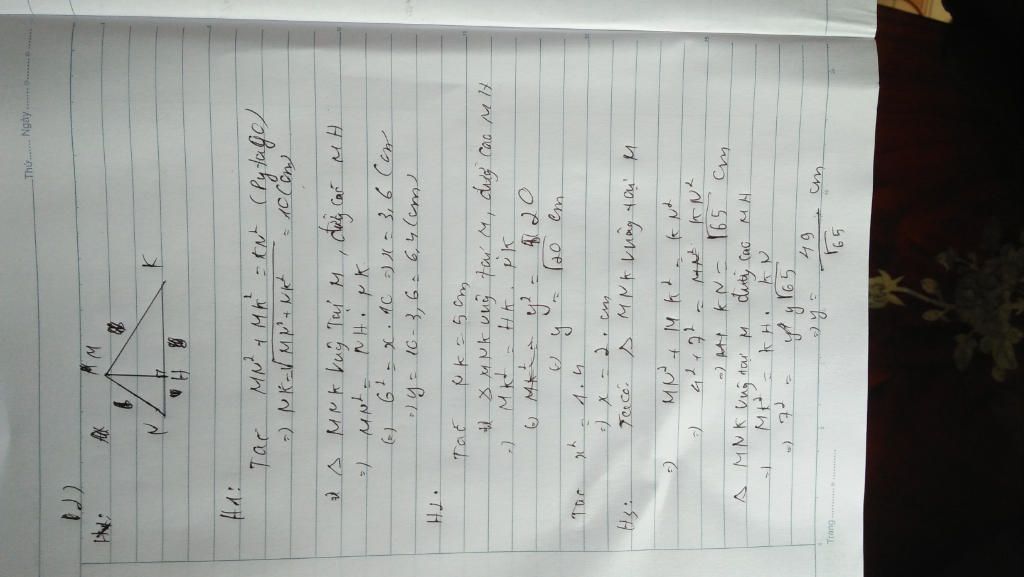 Thứ....... Ngày.......
B2)
M
N H K
H1:
Tac MN² + MK² = KN² (Pytago)
=) NK = √MN² + NK² = 10 (cm)
=) Δ MNK vuông tại M, đường cao MH
=) MN² = NH . NK
(=) 6² = x . 10 =) x = 3,6 (cm
=) y = 10 - 3,6 = 6,4 (cm)
H2.
Tac NK = 5 cm
Δ MNK vuông tại M, đường cao MH
=) MK² = HK . NK
y² = 20
y = √20 cm
Tac x² = 1.4
=) x = 2 . cm
H3: Δ MNK vuông tại M
=) MN² + MK² = KN²
=) 4² + 7² = KN²
=) KN = √65 cm
Δ MNK vuông tại M đường cao MH
=) MK² = KH . KN
=) 7² = y√65
=) y = 49/√65 cm
Trang